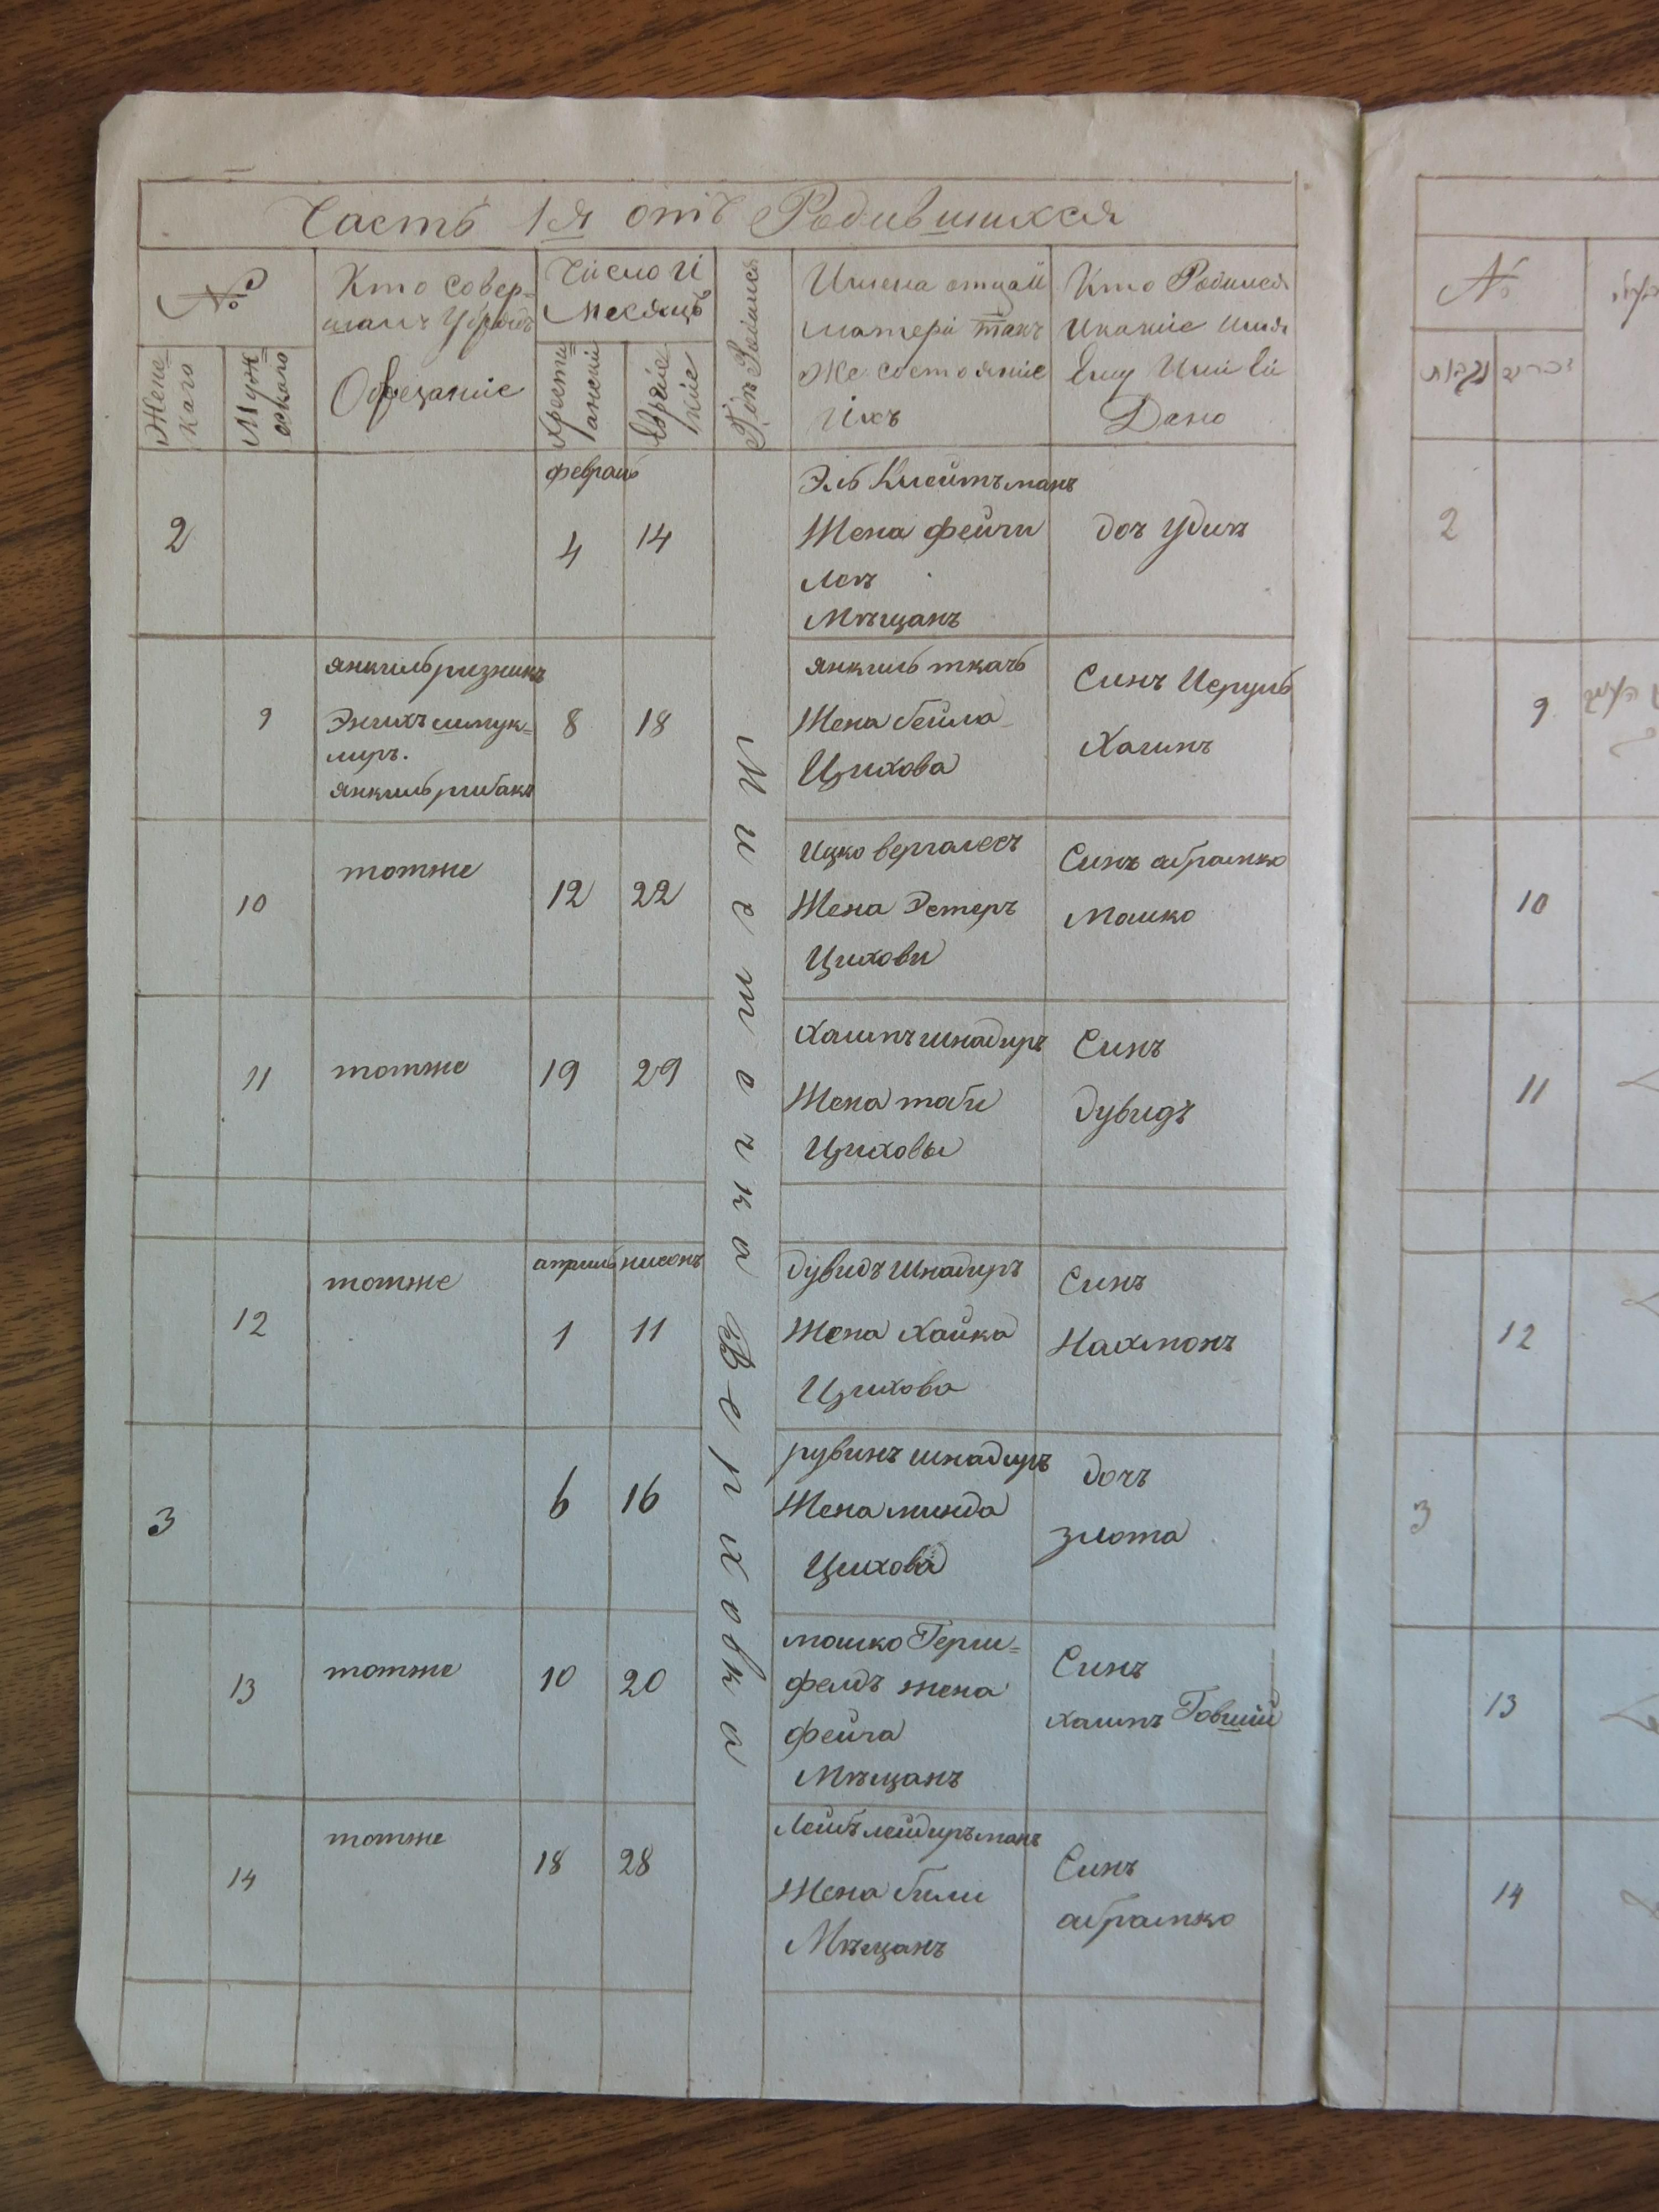 Часть 1я отъ Родившихся
№
Кто совер=
шалъ Убрядъ
Обрезаніе
Число И
месяцъ
Женс=
каго
Муж=
скаго
Христи
анскій
Еврейс
кіе
Где Родился
Имена отца И
матери также
состояніе
Ихъ
Кто Родился
Икакие имя
Ему Или ей
Дано
февраль
2
4
14
Эль Клейтъманъ
Жена фейги
Мѣщанъ
доч Удичъ
9
янкиль ризникъ
янкиль рибакъ
8
18
янкиль ткачъ
Жена бейла
Цихова
Синъ Иерулъ
Хаимъ
10
тотже
12
22
Ицко вергалесъ
Жена Эстеръ
Цихови
Синъ абрамко
Мошко
11
тотже
19
29
Хаимъ шнадиръ
Жена таби
Циховы
Синъ
дувидъ
12
тотже
априль нисонъ
1
11
дувидъ Шнадиръ
Жена Хайка
Цихова
Синъ
Нахмонъ
3
6
16
рувинъ шнадиръ
Жена минда
Цихова
дочъ
злота
13
тотже
10
20
мошко Герш=
фелдъ жена
фейга
Мѣщанъ
Синъ
хаимъ Говший
14
тотже
18
28
Лейбъ лейдиръманъ
Жена били
Мѣщанъ
Синъ
абрамко
Местечка Верховка
№
נקבות
זכרים
2
9
10
11
12
3
13
14